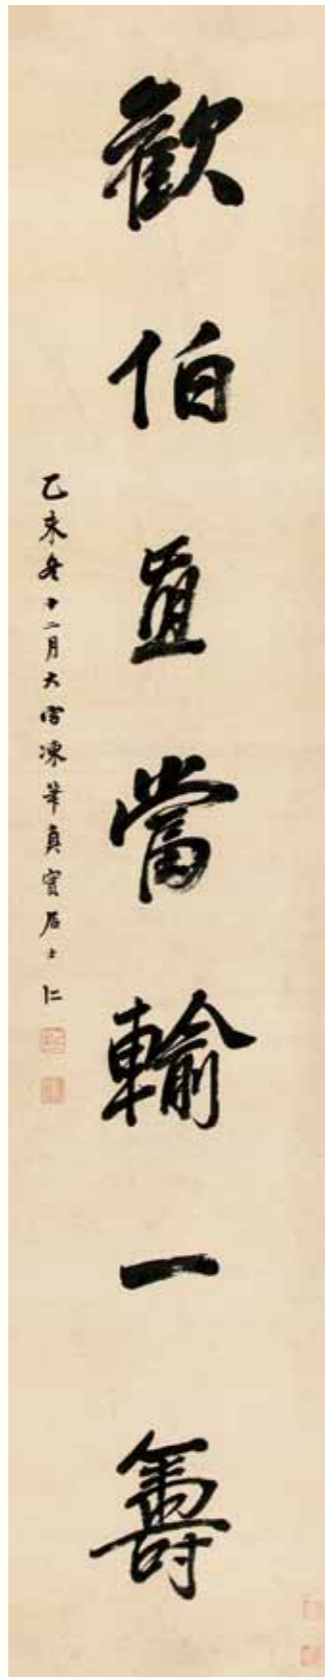 歡伯直當輸一籌
乙未冬十二月大雪凍筆真實居士仁